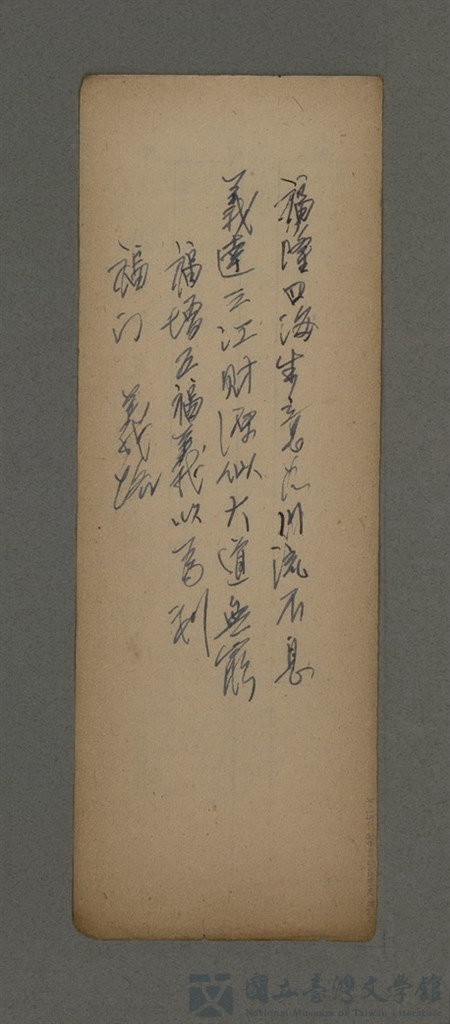 福隆四海生意如川流不息
義達三江財源似大道無窮
福增五福義以為利
福门 義路
國立臺灣文學館
National Museum of Taiwan Literature